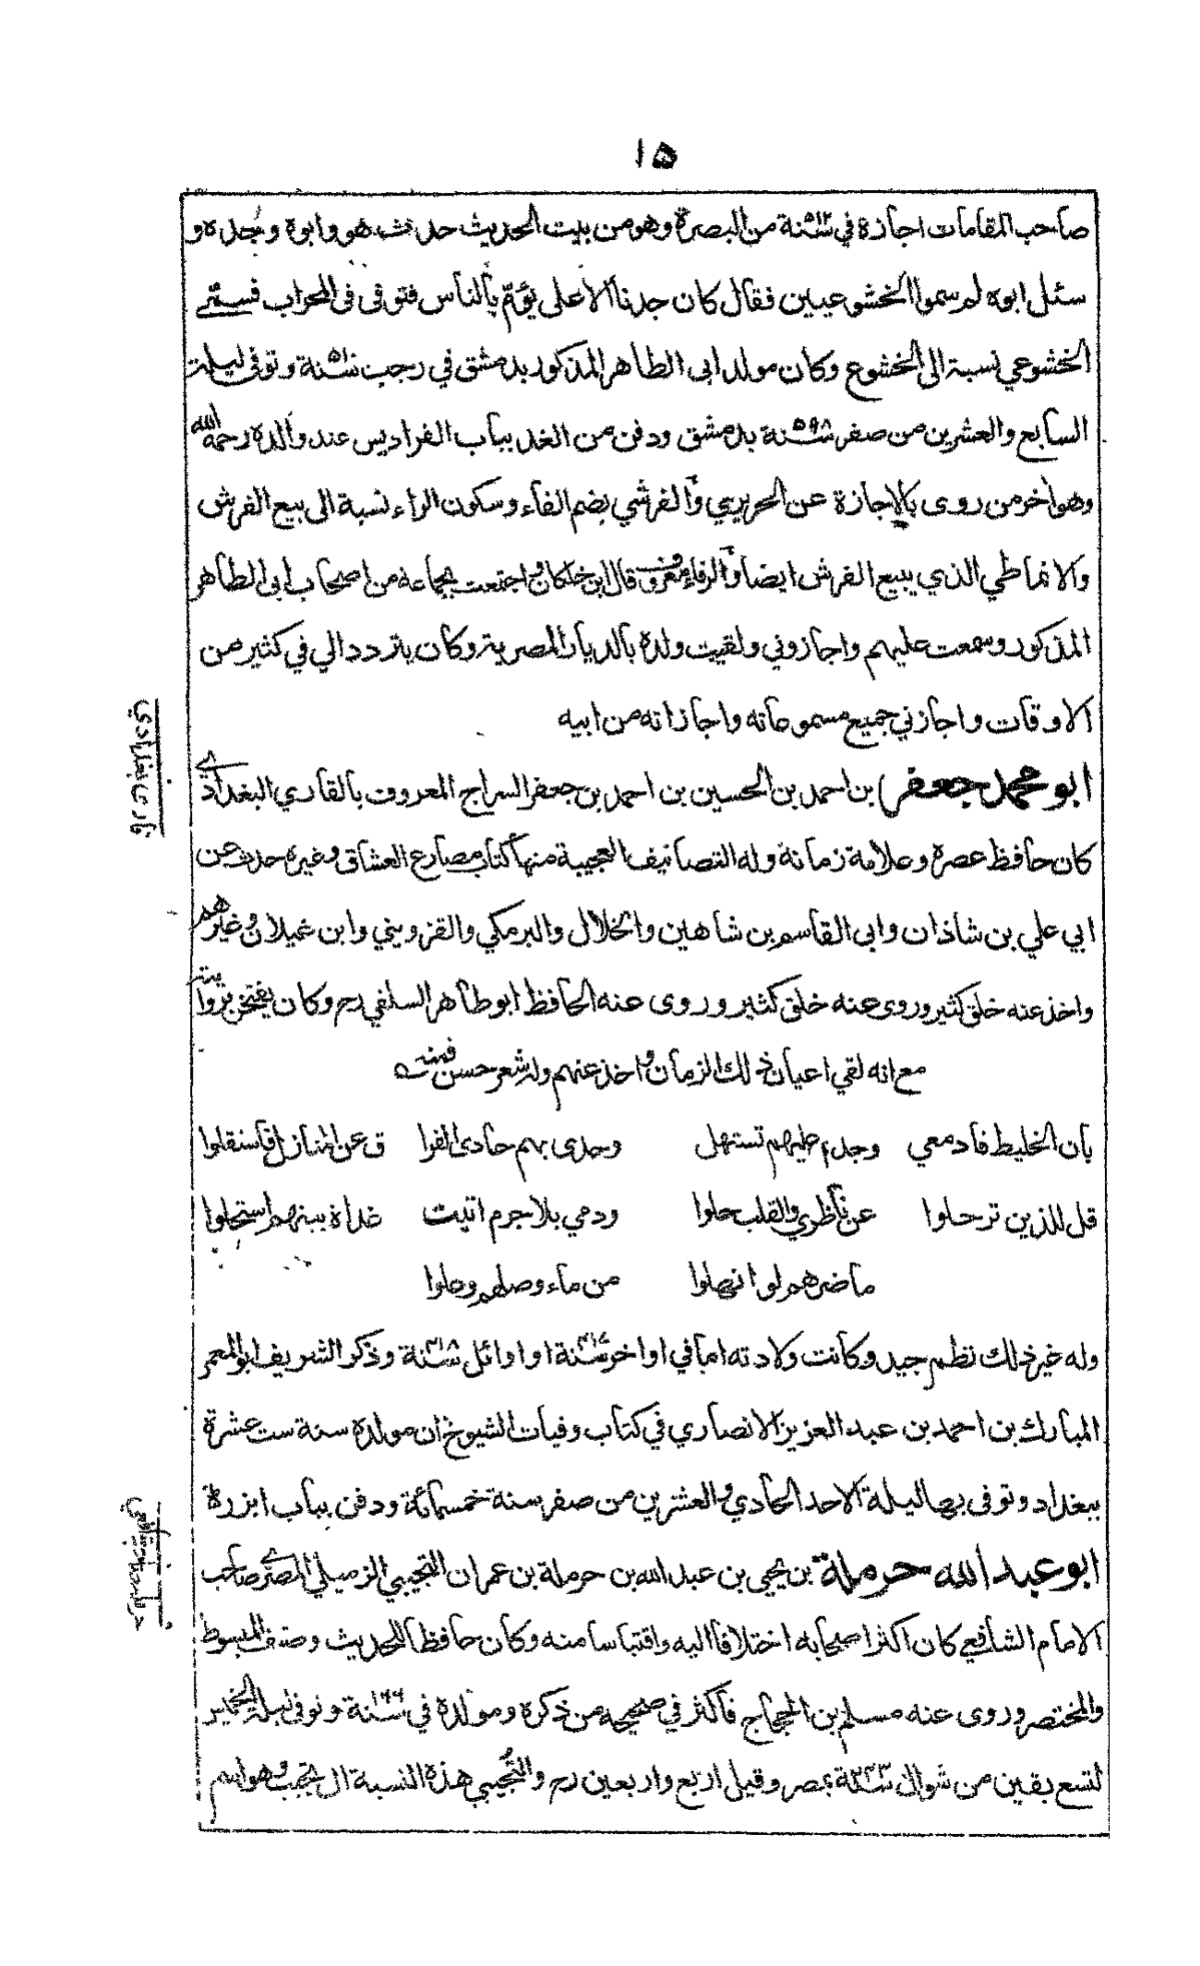 ١٥
صاحب المقامات اجازة في ٥١٢سنة من البصرة وهو من بيت الحديث حدث هو وابوه وجده و
سئل ابوه لم سموا الخشوعيين فقال كان جدنا الاعلى يؤمّ بالناس فتوفى فى المحراب فسمّي
الخشوعي نسبة الى الخشوع وكان مولد ابى الطاهر المذكور بدمشق في رجب ٥١٠سنة وتوفى ليلة
السابع والعشرين من صفر ٥٩٨سنة بدمشق ودفن من الغد بباب الفراديس عند والده رحمه الله
وهو اخر من روى بالاجازة عن الحريري والفرشي بضم الفاء وسكون الراء نسبة الى بيع الفرش
والانماطي الذي يبيع الفرش ايضا والرفاء معروف قال ابن خلكان واجتمعت بجماعة من اصحاب ابى الطاهر
المذكور وسمعت عليهم واجازوني ولقيت ولده بالديار المصرية وكان يتردد الي في كثير من
الاوقات واجازني جميع مسموعاته واجازاته من ابيه
ابو محمد جعفر بن احمد بن الحسين بن احمد بن جعفر السراج المعروف بالقاري البغدادي
قارى بغدادي
كان حافظ عصره وعلامة زمانه وله التصانيف العجيبة منها كتاب مصارع العشاق وغيره حدث عن
ابي علي بن شاذان وابى القاسم بن شاهين والخلال والبرمكي والقزويني وابن غيلان وغيرهم
واخذ عنه خلق كثير وروى عنه خلق كثير وروى عنه الحافظ ابو طاهر السلفي رح وكان يفتخر بروايته
مع انه لقي اعيان ذلك الزمان واخذ عنهم وله شعر حسن فمنه
بان الخليط فادمعي وجدا عليهم تستهل وحدى بهم حادى الفرا ق عن المنازل فاستقلوا
قل للذين ترحلوا عن ناظري والقلب حلوا ودمي بلا جرم اتيت غداة بينهم استحلوا
ما ضرهم لو انهلوا من ماء وصلهم وعلوا
وله غير ذلك نظم جيد وكانت ولادته اما في اواخر ٤١٧سنة او اوائل ٤١٨سنة وذكر الشريف ابو المعمر
المبارك بن احمد بن عبد العزيز الانصاري في كتاب وفيات الشيوخ ان مولده سنة ست عشرة
ببغداد وتوفى بها ليلة الاحد الحادي والعشرين من صفر سنة خمسمائة ودفن بباب ابزرة
ابو عبد الله حرملة بن يحيى بن عبد الله بن حرملة بن عمران التجيبي الزميلي المصري صاحب
الامام الشافعي كان اكثر اصحابه اختلافا اليه واقتباسا منه وكان حافظا للحديث وصنف المبسوط
والمختصر وروى عنه مسلم بن الحجاج فاكثر في صحيحه من ذكره ومولده في ١٦٦سنة وتوفى ليلة الخميس
لتسع بقين من شوال ٢٤٣سنة بمصر وقيل اربع واربعين رح والتجيبي هذه النسبة الى تجيب وهو اسم